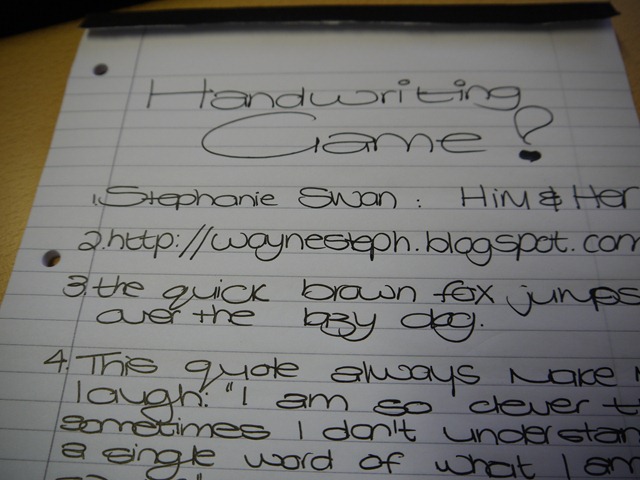 Handwriting
Game?
1. Stephanie Swan : Him & Her
2. http://waynesteph.blogspot.com
3. the quick brown fox jumps
over the lazy dog.
4. This quote always make
laugh: "I am so clever
sometimes I don't understan
a single word of what I am